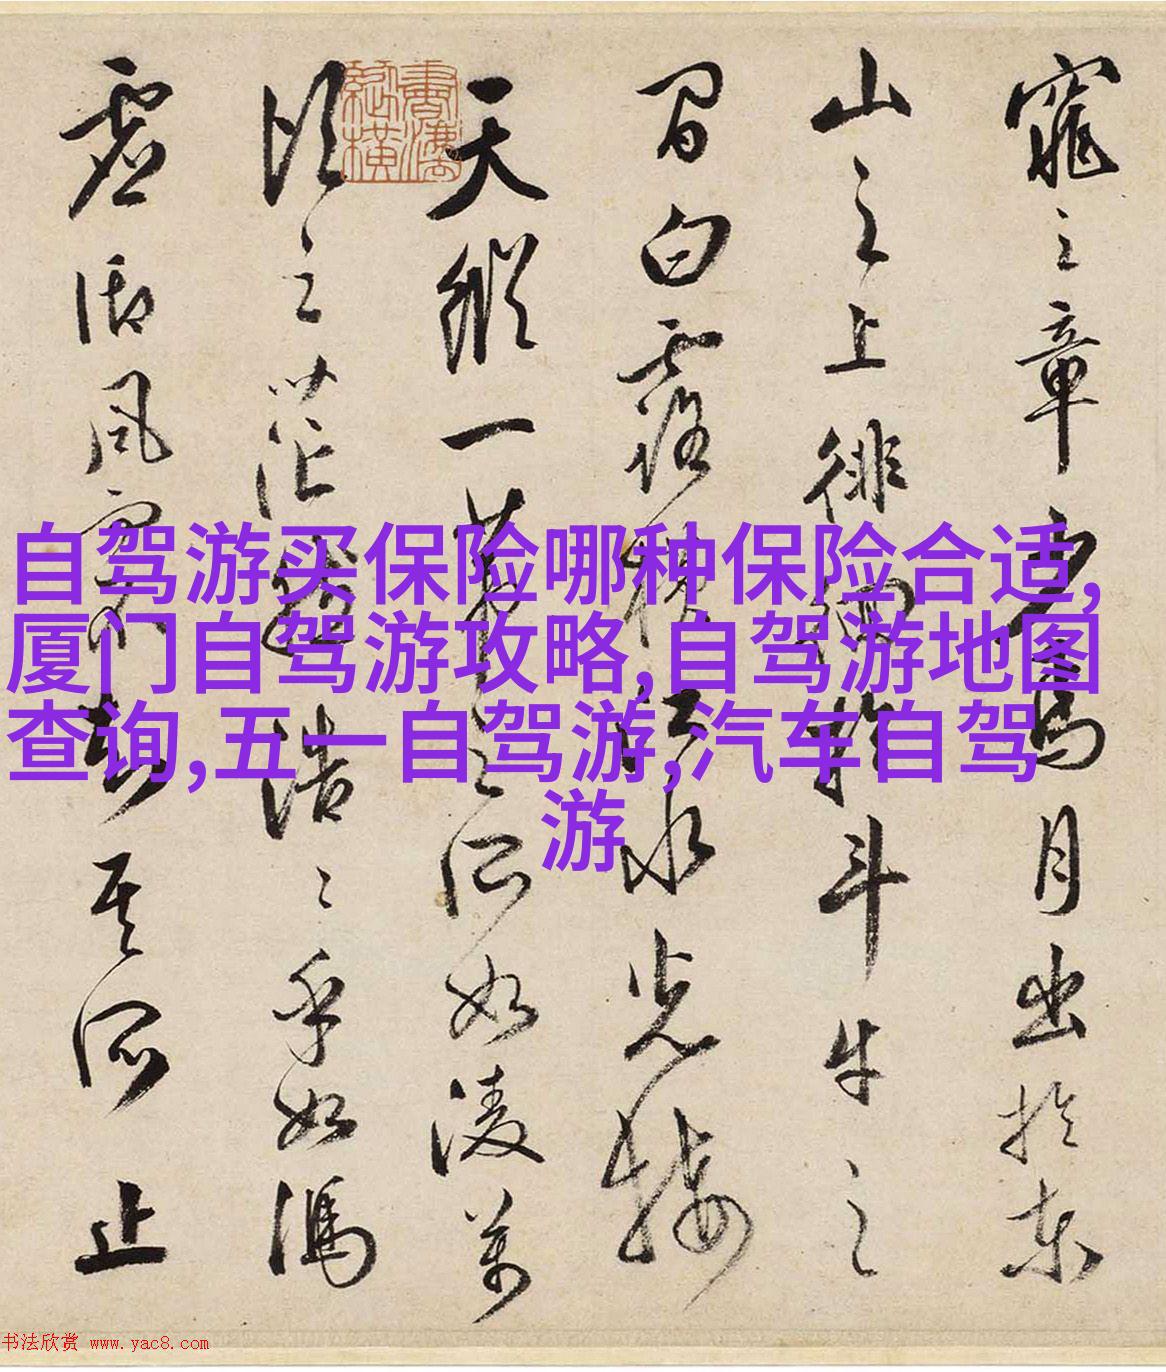 窕之章少焉月出於東
山之上徘徊於斗牛之
間白露橫江水光接
天縱一葦之所如淩萬
頃之茫然浩〻乎如馮
虛御風而不知其所止
自驾游买保险哪种保险合适,
厦门自驾游攻略,自驾游地图
查询,五一自驾游,汽车自驾
游
书法欣赏 www.yac8.com